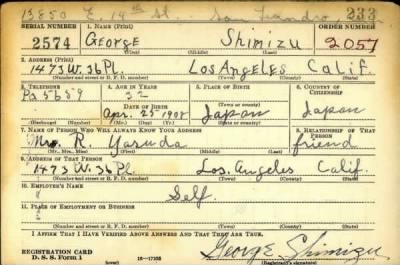 13850 E 14th St. San Leandro 233
SERIAL NUMBER 1. NAME (Print) ORDER NUMBER
2574 George Shimizu 2057
(First) (Middle) (Last)
2. ADDRESS (Print)
1473 W. 36 Pl. Los Angeles Calif.
(Number and street or R. F. D. number) (Town) (County) (State)
3. TELEPHONE 4. AGE IN YEARS 5. PLACE OF BIRTH 6. COUNTRY OF CITIZENSHIP
32 Japan
DATE OF BIRTH (Town or county)
Apr. 25 1908 Japan Japan
(Exchange) (Number) (Mo.) (Day) (Yr.) (State or country)
7. NAME OF PERSON WHO WILL ALWAYS KNOW YOUR ADDRESS 8. RELATIONSHIP OF THAT PERSON
Mrs. R. Yasuda friend
(Mr., Mrs., Miss) (First) (Middle) (Last)
9. ADDRESS OF THAT PERSON
1473 W. 36 Pl. Los Angeles Calif.
(Number and street or R. F. D. number) (Town) (County) (State)
10. EMPLOYER'S NAME
Self.
11. PLACE OF EMPLOYMENT OR BUSINESS
(Number and street or R. F. D. number) (Town) (County) (State)
I AFFIRM THAT I HAVE VERIFIED ABOVE ANSWERS AND THAT THEY ARE TRUE.
REGISTRATION CARD George Shimizu
D. S. S. Form 1 (over) (Registrant's signature)